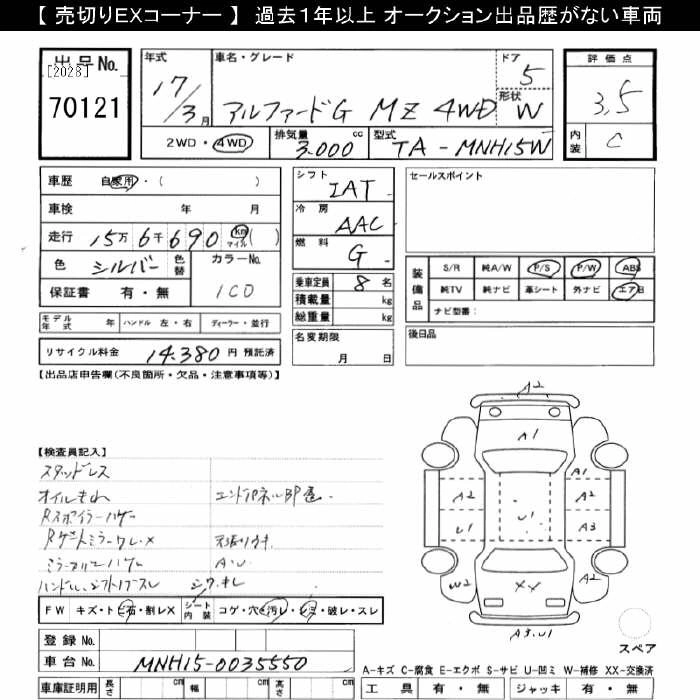 【 売切りEXコーナー 】 過去1年以上 オークション出品歴がない車両
出品No.
[2028]
70121
年式
17/3月
車名・グレード
アルファードG MZ 4WD
ドア
5
形状
W
評価点
3.5
内装
C
2WD・4WD
排気量 cc
3.000
型式
TA-MNH15W
車歴 自家用・( )
車検 年 月
走行 15万6千690 km マイル ( )
色 シルバー 色替
カラーNo.
1C0
保証書 有・無
モデル年式 年 ハンドル 左・右 ディーラー・並行
リサイクル料金 14.380 円 預託済
シフト
IAT
冷房
AAC
燃料
G
乗車定員 8 名
積載量 kg
総重量 kg
名変期限
月 日
セールスポイント
装備品
S/R 純A/W P/S P/W ABS
純TV 純ナビ 革シート 外ナビ エアB
ナビ型番:
後日品
【出品店申告欄(不良箇所・欠品・注意事項等)】
【検査員記入】
スタッドレス
オイルもれ
エンドパネルBP
Rスポイラーハゲ
天張り
A.U
FW キズ・トビ石・割レX シート内装 コゲ・穴・汚レ・シミ・破レ・スレ
登録No.
車台No. MNH15-0035550
車庫証明用 長さ cm 幅 cm 高さ cm
A2
A1
A1
A2
A2
U1
U1
A3
W2
XX
A2
A3.U1
スペア
A-キズ C-腐食 E-エクボ S-サビ U-凹ミ W-補修 XX-交換済
工具 有・無 ジャッキ 有・無